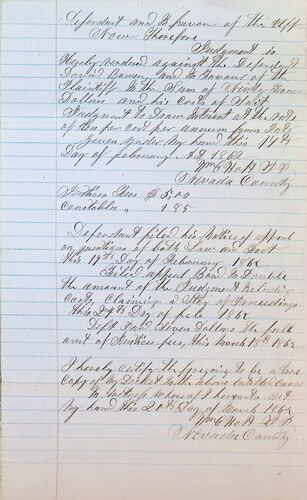 Defendant and in favour of the Plff
Now Therefore
Judgment is
Hereby rendered against the Defendant
David Bowen and in favour of the
Plaintiff in the Sum of Ninety Four
Dollars and his Costs of Suit
Judgment to Draw Interest at the rate
of ten per cent per annum from Date
Given under my hand this 14th
Day of february AD 1862
J P
Nevada County
Justices fees $ 5,00
Constables " 1 85
Defendant filed his Notice of appeal
on questions of both Law and fact
this Day of February 1862
Filed appeal Bond in Double
the amount of the Judgment
Costs Claiming a Stay of Proceedings
this Day of feb 1862
Deft Paid Dollars the full
amt of Justices fees, this March 1862
I hereby certify the foregoing to be a true
Copy of my Docket in the above entitled Cause
In Witness whereof I hereunto Set
My hand this 20th Day of March 1862
J P
Nevada County